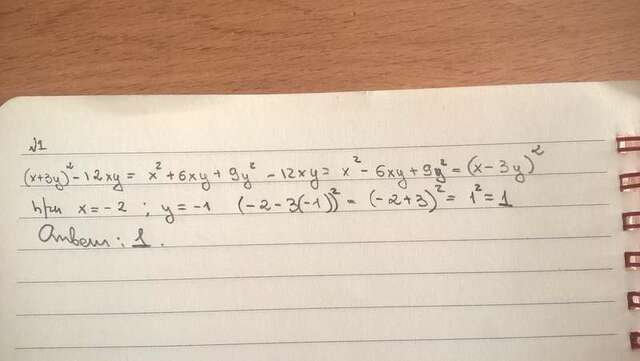 №1
(x+3y)² - 12xy = x² + 6xy + 9y² - 12xy = x² - 6xy + 9y² = (x - 3y)²
при x = -2 ; y = -1 (-2 - 3(-1))² = (-2+3)² = 1² = 1
Ответ: 1.